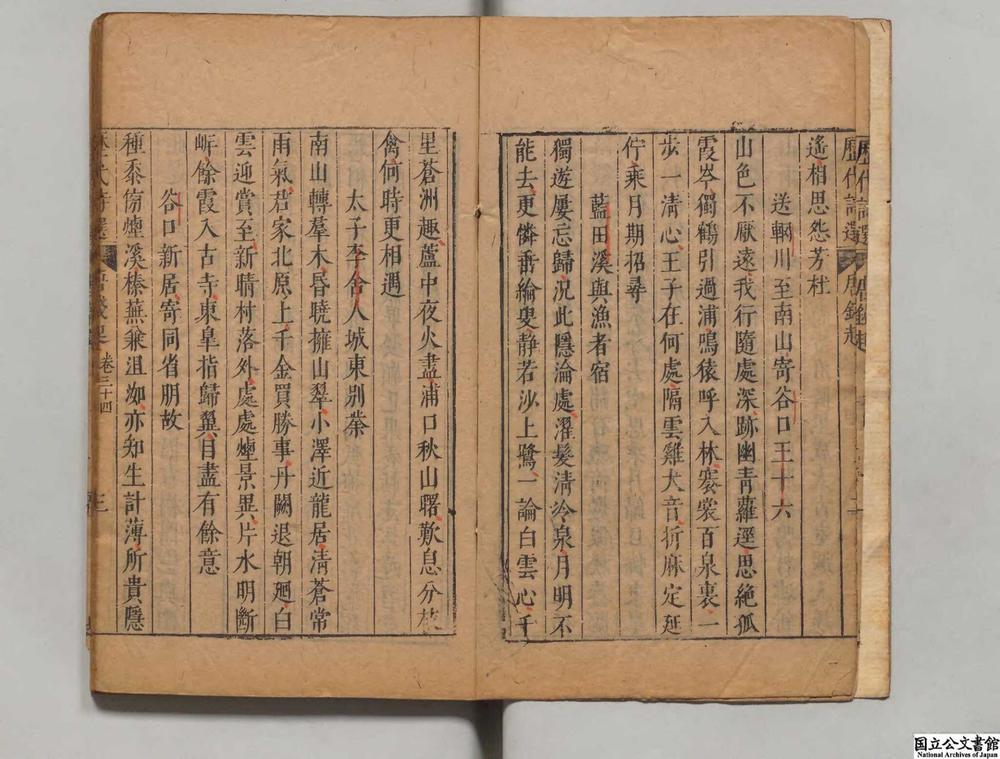 歷代詩選 唐錢起
遙相思怨芳杜
送輞川至南山寄谷口王十六
山色不厭遠我行隨處深跡幽靑蘿逕思絶孤
霞岑獨鶴引過浦鳴猿呼入林褰裳百泉裏一
步一淸心王子在何處隔雲雞犬音折麻定延
佇乘月期招尋
藍田溪與漁者宿
獨遊屢忘歸況此隱淪處濯髮淸泠泉月明不
能去更憐垂綸叟靜若沙上鷺一論白雲心千
里蒼洲趣蘆中夜火盡浦口秋山曙歎息分枝
禽何時更相遇
太子李舍人城東別業
南山轉羣木昏曉擁山翠小澤近龍居淸蒼常
雨氣君家北原上千金買勝事丹闕退朝廻白
雲迎賞至新晴村落外處處煙景異片水明斷
岸餘霞入古寺東皐指歸翼目盡有餘意
谷口新居寄同省朋故
種黍傍煙溪榛蕪兼沮洳亦知生計薄所貴隱
卷三十四
三
国立公文書館
National Archives of Japan